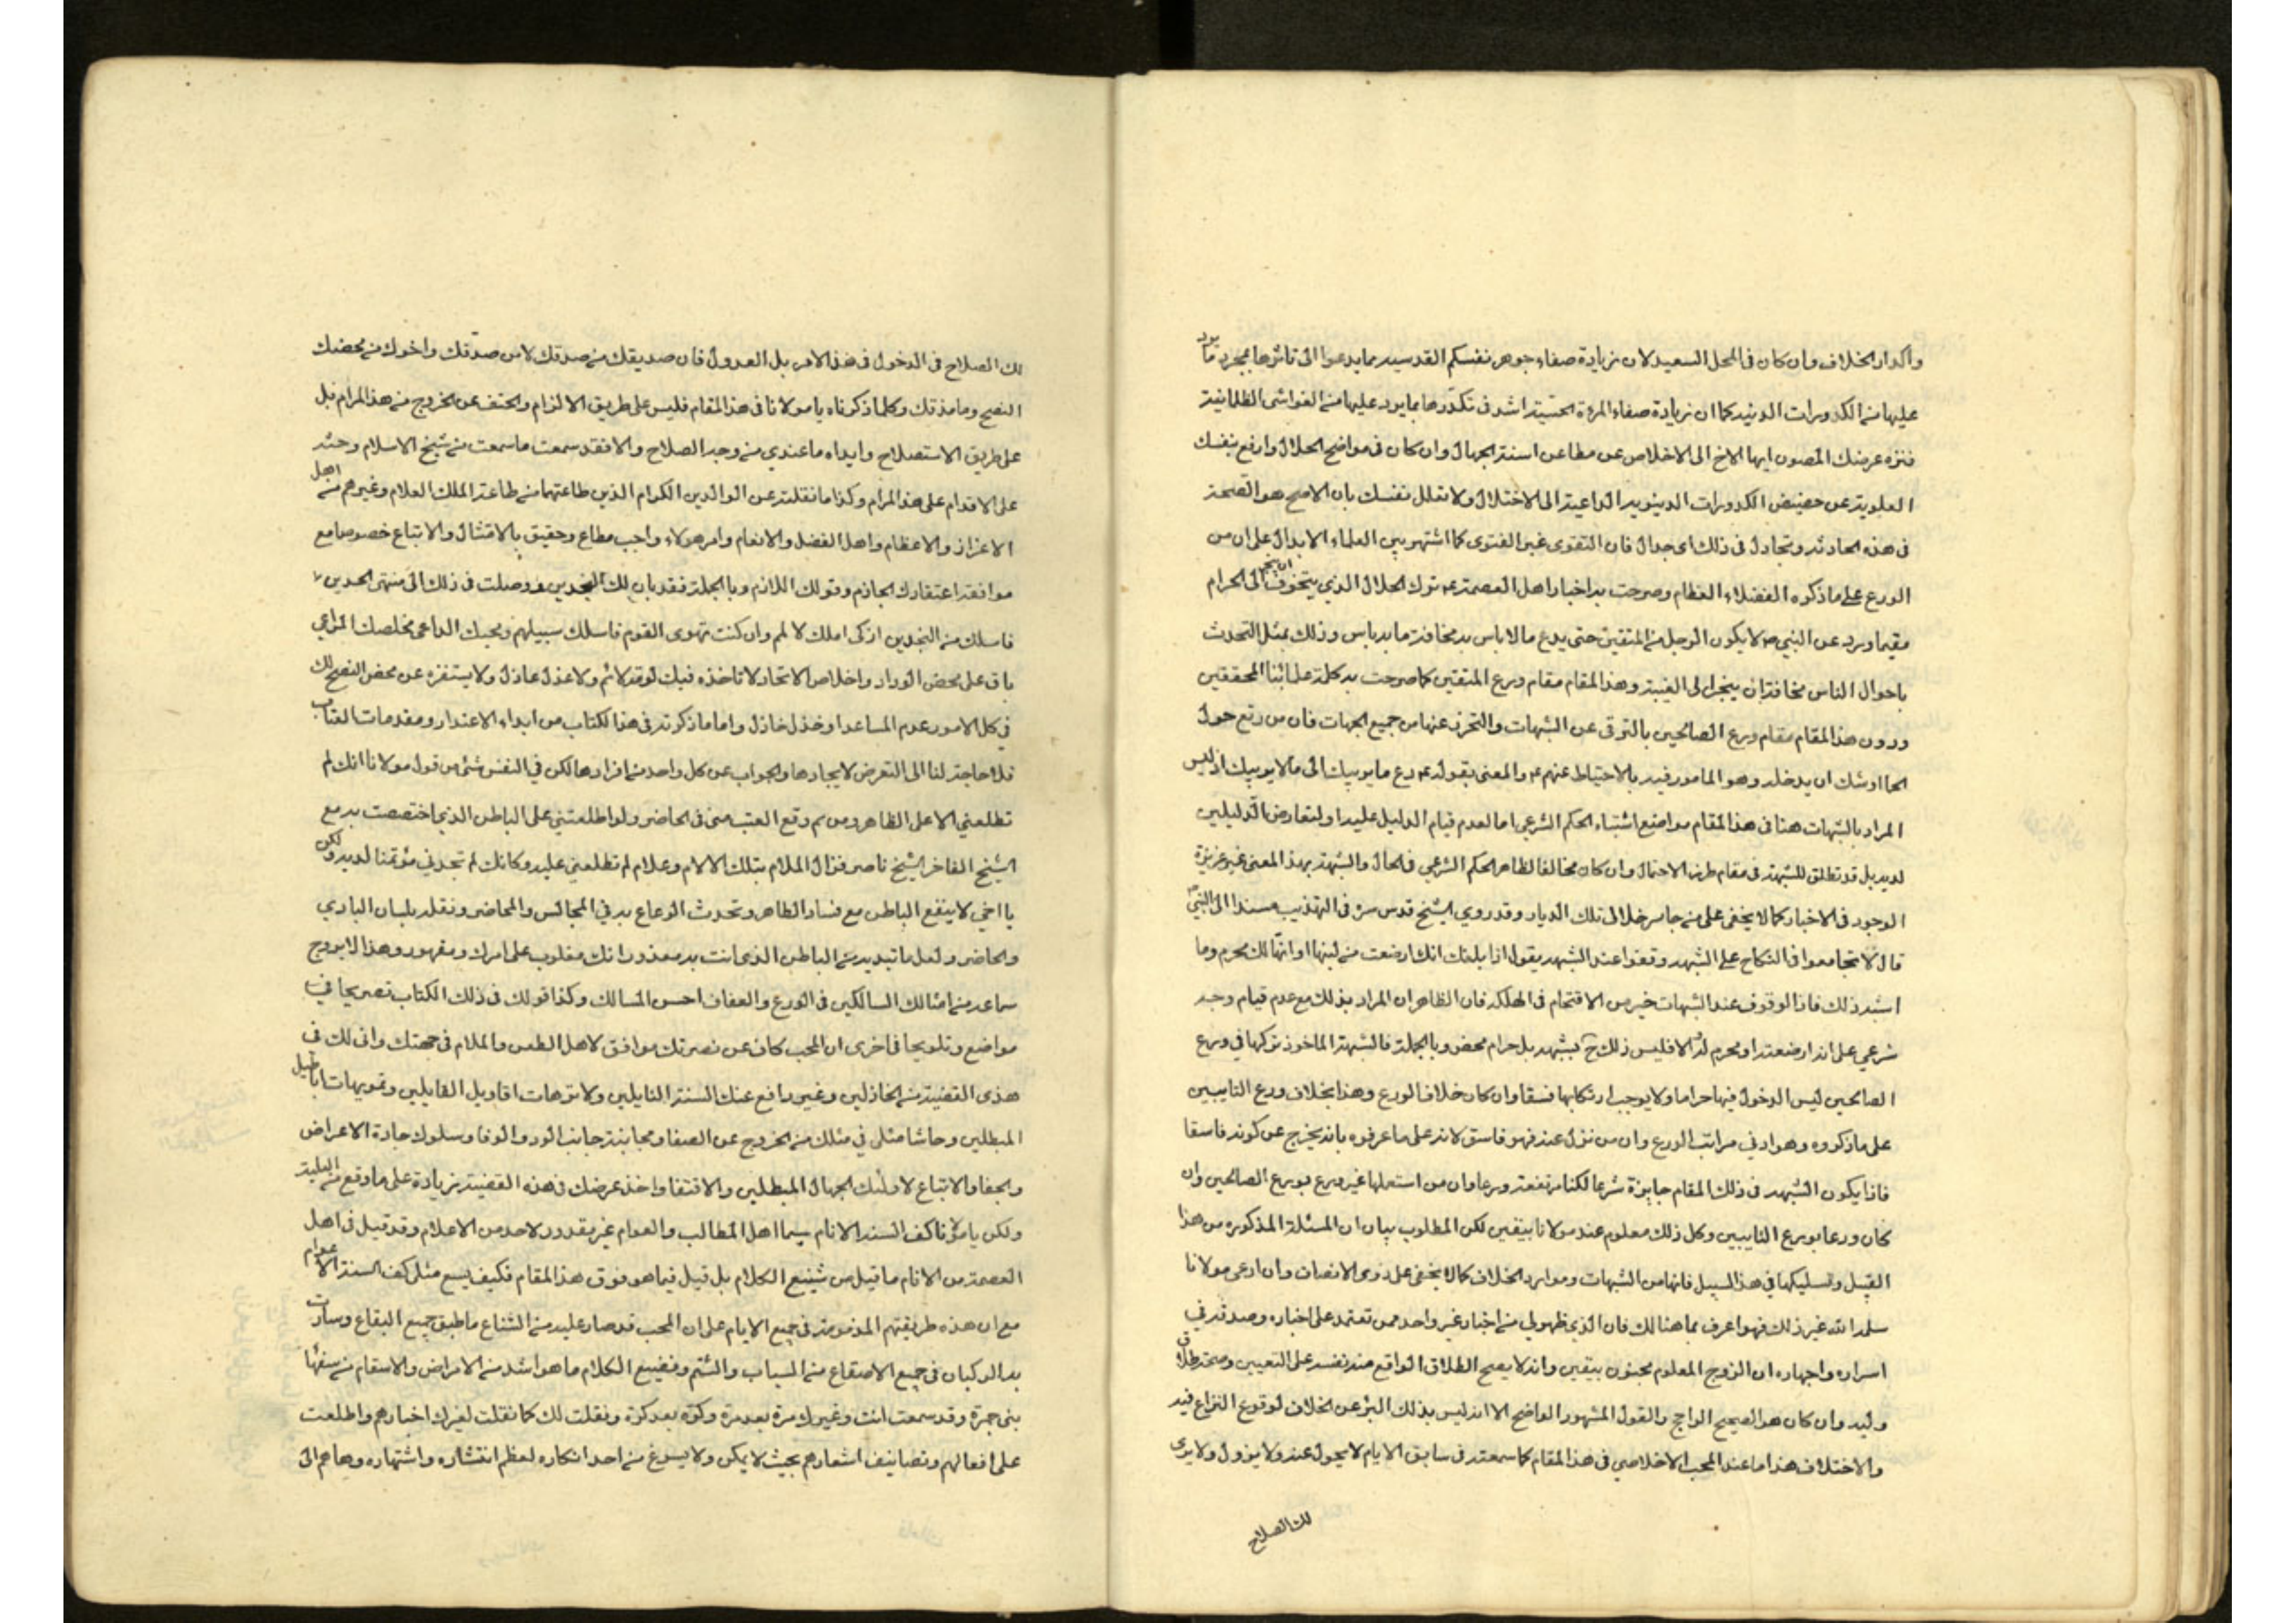 واكدار الخلاف وان كان في المحل السعيد لان زيادة صفاء جوهر نفسكم القدسيه مما يدعوا الى تاثرها بمجرد ما يرد
عليها من الكدورات الدنيه كما ان زيادة صفاء المرءة الحسية اشد في تكدرها بما يرد عليها من الغواشي الظلمانية
فنزه عرضك المصون ايها الاخ الى الاخلاص عن مطاعن اسنة الجهال وان كان في مواضع الحلال وارفع بنفسك
العلوية عن حضيض الكدورات الدينويه الداعية الى الاختلال ولا تعلل نفسك بان الاصح هو الصحة
في هذه الحادثه وتجادل في ذلك اي جدال فان التقوى غير الفتوى كما اشتهر بين العلماء الابدال على ان من
الورع على ما ذكره الفضلاء العظام وصرحت به اخبار اهل العصمة ع ترك الحلال الذي يتخوف ان يجر الى الحرام
فيما ورد عن النبي ص لا يكون الرجل من المتقين حتى يدع ما لا باس به مخافة ما به باس وذلك بمثل التحدث
باحوال الناس مخافة ان ينجر الى الغيبة وهذا المقام مقام ورع المتقين كما صرحت به كلمة علمائنا المحققين
ودون هذا المقام مقام ورع الصالحين بالتوقي عن الشبهات والتحرز عنها من جميع الجهات فان من رتع حول
الحما اوشك ان يدخله وهو المامور فيه بالاحتياط عنهم ع والمعنى بقوله ع دع ما يريبك الى ما لا يريبك اذ ليس
المراد بالشبهات هنا في هذا المقام مواضع اشتباه الحكم الشرعي اما لعدم قيام الدليل عليه او لتعارض الدليلين
لديه بل قد تطلق للشبهة في مقام طرف الاحتمال وان كان مخالفا لظاهر الحكم الشرعي في الحال والشبهة بهذا المعنى غير عزيزة
الوجود في الاخبار كما لا يخفى على من جاس خلال تلك الديار وقد روى الشيخ قدس سره في التهذيب مسندا الى النبي ص
قال لا تجامعوا في النكاح على الشبهه وقفوا عند الشبهه يقول اذا بلغك انك ارضعت من لبنها او انها لك محرم وما
اشبه ذلك فاذا الوقوف عند الشبهات خير من الاقتحام في الهلكه فان الظاهر ان المراد بذلك مع عدم قيام وجه
شرعي على انه ارضعته او محرم له والا فليس ذلك ح بشبهه بل حرام محض وبالجملة فالشبهة الماخوذ تركها في ورع
الصالحين ليس الدخول فيها حراما ولا يوجب ارتكابها فسقا وان كان خلاف الورع وهذا بخلاف ورع التايبين
على ما ذكروه وهو ادنى مراتب الورع وان من نزل عنه فهو فاسق لانه على ما عرفوه بانه يخرج عن كونه فاسقا
فاذا يكون الشبهه في ذلك المقام جايزة شرعا لكنا وان من استعملها غير ورع بورع الصالحين وان
كان ورعا بورع التايبين وكل ذلك معلوم عند مولانا بيقين لكن المطلوب بيان ان المسئلة المذكوره من هذا
القبيل وتسليكها في هذا السبيل فانها من الشبهات وموارد الخلاف كما لا يخفى على ذوي الانصاف وان ادعى مولانا
سلمه الله غير ذلك فهو اعرف بما هنالك فان الذي ظهر لي من اخبار غير واحد ممن تعتمد على اخباره وصدقه في
اسراره واجهاره ان الزوج المعلوم مجنون بيقين وانه لا يصح الطلاق الواقع منه نفسه على التعيين وصحة طلاق
وليه وان كان هو الصحيح الراجح والقول المشهور الواضح الا انه ليس بذلك البرئ عن الخلاف لوقوع النزاع فيه
والاختلاف هذا ما عند المحب الاخلاصي في هذا المقام كما سمعته في سابق الايام لا يحول عنه ولا يزول ولا يرى
لك الصلاح
لك الصلاح في الدخول في هذا الامر بل العدول فان صديقك من صدقك لا من صدّقك واخوك من محضك
النصح وما مذقك وكلما ذكرناه يا مولانا في هذا المقام فليس على طريق الالزام والحتف عن الخروج من هذا المرام بل
على طريق الاستصلاح وابداء ما عندي من وجه الصلاح والا فقد سمعت ما سمعت من شيخ الاسلام وحثه
على الاقدام على هذا المرام وكذا ما نقلته عن الوالدين الكرام الذين طاعتهما من طاعة الملك العلام وغيرهم من اهل
الاعزاز والاعظام واهل الفضل والانعام وامر هولاء واجب مطاع وحقيق بالامتثال والاتباع خصوصا مع
موافقة اعتقادك الجازم وقولك اللازم وبالجملة فقد بان لك النجدين ووصلت في ذلك الى منتهى الحدين
فاسلك من النجدين ازكى املك لا لم وان كنت تهوى القوم فاسلك سبيلهم ومحبك الداعي مخلصك المراعي
باق على محض الوداد واخلاص الاتحاد لا تاخذه فيك لومة لائم ولا عذل عاذل ولا يستفزه عن محض النصح لك
في كل الامور عدم المساعد او خذل خاذل واما ما ذكرته في هذا الكتاب من ابداء الاعتذار ومقدمات العتاب
فلا حاجة لنا الى التعرض لايجادها والجواب عن كل واحد من افرادها لكن في النفس شئ من قول مولانا انك لم
تطلعني الا على الظاهر ومن ثم وقع العتب منى في الحاضر ولو اطلعتني على الباطن الذي اختصصت به مع
الشيخ الفاخر الشيخ ناصر فزال الملام بتلك الالام وعلام لم تطلعني عليه وكانك لم تجدني مؤتمنا لديه ولكن
يا اخي لا ينفع الباطن مع فساد الظاهر وتحدث الرعاع به في المجالس والمحاضر ونقله بلسان البادي
والحاضر ولعل ما تبديه من الباطن الذي انت به معذور انك مغلوب على امرك ومقهور وهذا لا يروج
سماعه من امثالك السالكين في الورع والعفاف احسن المسالك وكذا قولك في ذلك الكتاب تصريحا في
مواضع وتلويحا في اخرى ان المحب كاف عن نصرتك موافق لاهل الطعن والملام في جهتك وانى لك في
هذى القضية من الخاذلين وغير رافع عنك السنة النايلين ولا ترهات اقاويل القايلين وتمويهات اباطيل
المبطلين وحاشا مثلي في مثلك من الخروج عن الصفا ومجانبة جانب الود والوفا وسلوك جادة الاعراض
والجفا والاتباع لاولئك الجهال المبطلين والاقتفا واخذ عرضك في هذه القضية زيادة على ما وقع من البلية
ولكن يا مولانا كف السنة الانام سيما اهل المطالب والعوام غير مقدور لاحد من الاعلام وقد قيل في اهل
العصمة من الانام ما قيل من شنيع الكلام بل قيل فيما هو فوق هذا المقام فكيف يسع مثلي كف السنة العوام
مع ان هذه طريقتهم المذمومة في جميع الايام على ان المحب قد صار عليه من الشناع ما طبق جميع البقاع وسارت
به الركبان في جميع الاصقاع من السباب والشتم وفضيع الكلام ما هو اشد من الامراض والاسقام من سفهاء
بني جمرة وقد سمعت انت وغيرك مرة بعد مرة وكرة بعد كرة ونقلت لك كما نقلت لغيرك اخبارهم واطلعت
على افعالهم وتصانيف اشعارهم بحيث لا يمكن ولا يسوغ من احد انكاره لعظم انتشاره واشتهاره وها هم الى